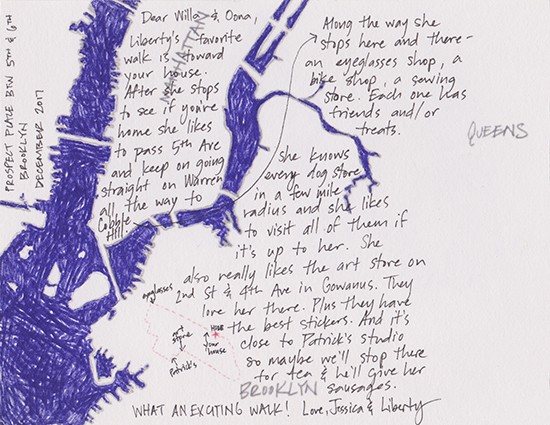 PROSPECT PLACE BTW 5TH & 6TH
BROOKLYN
DECEMBER 2017
MANHATTAN
Dear Willa & Oona,
Liberty's favorite
walk is toward
your house.
After she stops
to see if you're
home she likes
to pass 5th Ave
and keep on going
straight on Warren
all the way to
Cobble
Hill.
Along the way she
stops here and there-
an eyeglasses shop, a
bike shop, a sewing
store. Each one has
friends and/or
treats.
QUEENS
She knows
every dog store
in a few mile
radius and she likes
to visit all of them if
it's up to her. She
also really likes the art store on
2nd St & 4th Ave in Gowanus. They
love her there. Plus they have
the best stickers. And it's
close to Patrick's studio
so maybe we'll stop there
for tea & he'll give her
sausages.
eyeglasses
art
store
Patrick's
your
house
BROOKLYN
WHAT AN EXCITING WALK! Love, Jessica & Liberty